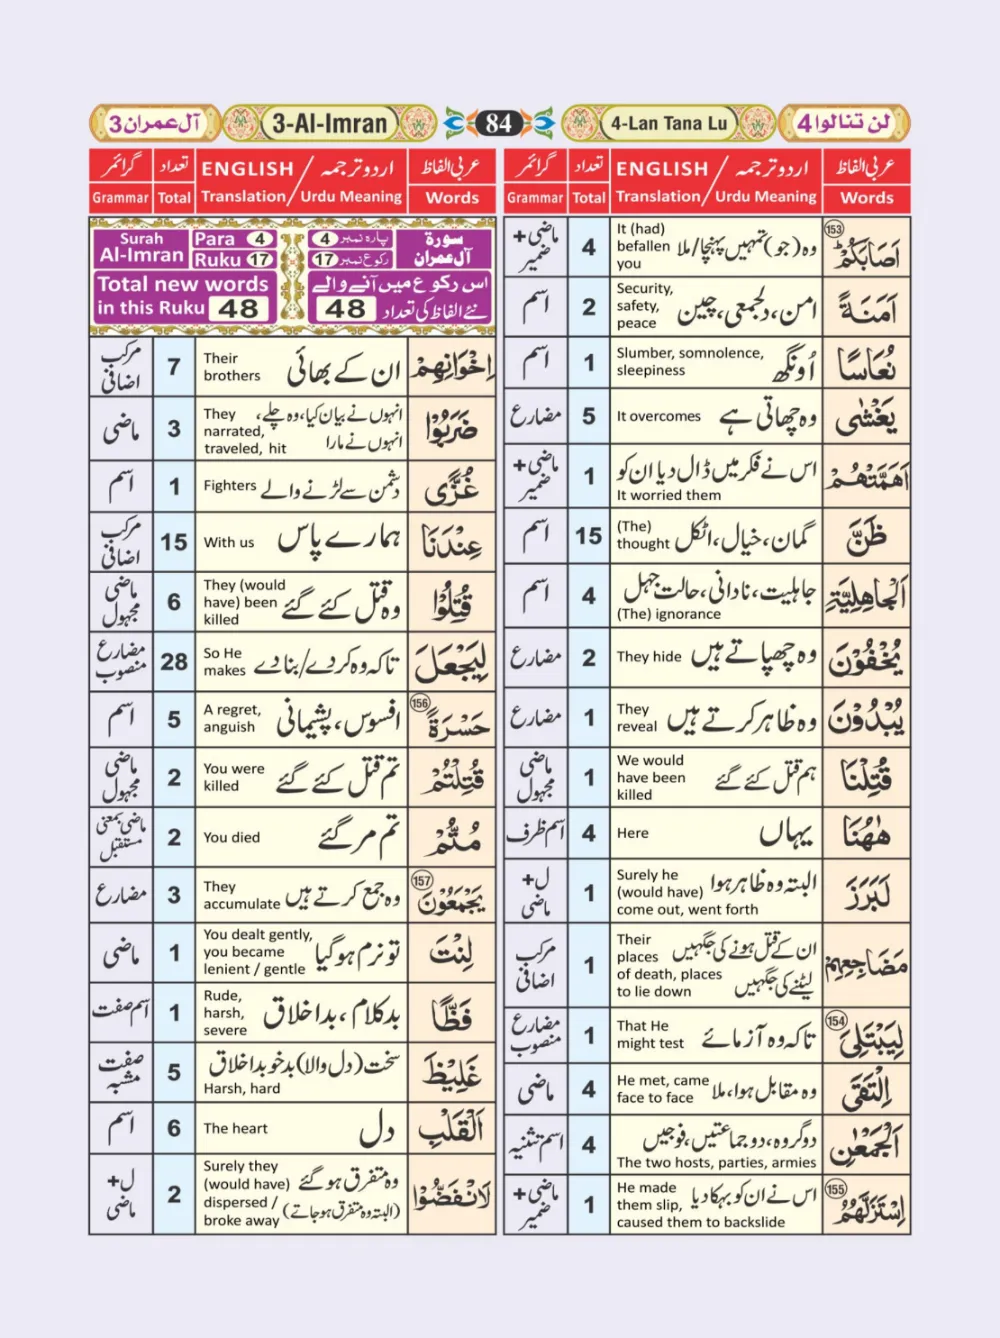 آل عمران 3
3-Al-Imran
84
4-Lan Tana Lu
لن تنالوا 4
عربی الفاظ اردو ترجمہ / ENGLISH تعداد گرائمر
Words Urdu Meaning / Translation Total Grammar
اَصَابَكُمْ ⑮③ وہ (جو) تمہیں پہنچا/ملا It (had) befallen you 4 ماضی + ضمیر
اَمَنَةً امن، دلجمعی، چین Security, safety, peace 2 اسم
نُعَاسًا اُونگھ Slumber, somnolence, sleepiness 1 اسم
يَغْشٰى وہ چھاتی ہے It overcomes 5 مضارع
اَهَمَّتْهُمْ اس نے فکر میں ڈال دیا ان کو It worried them 1 ماضی + ضمیر
ظَنَّ گمان، خیال، اٹکل (The) thought 15 اسم
اَلْجَاهِلِيَّةِ جاہلیت، نادانی، حالت جہل (The) ignorance 4 اسم
يُخْفُوْنَ وہ چھپاتے ہیں They hide 2 مضارع
يُبْدُوْنَ وہ ظاہر کرتے ہیں They reveal 1 مضارع
قُتِلْنَا ہم قتل کئے گئے We would have been killed 1 ماضی مجہول
هٰهُنَا یہاں Here 4 اسم ظرف
لَبَرَزَ البتہ وہ ظاہر ہوا Surely he (would have) come out, went forth 1 ل+ ماضی
مَضَاجِعِهِمْ ان کے قتل ہونے کی جگہیں لیٹنے کی جگہیں Their places of death, places to lie down 1 مرکب اضافی
لِيَبْتَلِيَ 154 تاکہ وہ آزمائے That He might test 1 مضارع منصوب
اِلْتَقَى وہ مقابل ہوا، ملا He met, came face to face 4 ماضی
اَلْجَمْعٰنِ دو گروہ، دو جماعتیں، فوجیں The two hosts, parties, armies 4 اسم تثنیہ
اِسْتَزَلَّهُمْ 155 اس نے ان کو بہکا دیا He made them slip, caused them to backslide 1 ماضی + ضمیر
عربی الفاظ اردو ترجمہ / ENGLISH تعداد گرائمر
Words Urdu Meaning / Translation Total Grammar
Surah Al-Imran Para 4 پارہ نمبر 4 سورۃ آل عمران
Ruku 17 رکوع نمبر 17
Total new words in this Ruku 48
اس رکوع میں آنے والے نئے الفاظ کی تعداد 48
اِخْوَانِهِمْ ان کے بھائی Their brothers 7 مرکب اضافی
ضَرَبُوْا انہوں نے بیان کیا، وہ چلے، انہوں نے مارا They narrated, traveled, hit 3 ماضی
غُزًّى دشمن سے لڑنے والے Fighters 1 اسم
عِنْدَنَا ہمارے پاس With us 15 مرکب اضافی
قُتِلُوْا وہ قتل کئے گئے They (would have) been killed 6 ماضی مجہول
لِيَجْعَلَ تاکہ وہ کردے/بنا دے So He makes 28 مضارع منصوب
حَسْرَةً 156 افسوس، پشیمانی A regret, anguish 5 اسم
قُتِلْتُمْ تم قتل کئے گئے You were killed 2 ماضی مجہول
مُتُّمْ تم مر گئے You died 2 ماضی بمعنی مستقبل
يَجْمَعُوْنَ 157 وہ جمع کرتے ہیں They accumulate 3 مضارع
لِنْتَ تو نرم ہو گیا You dealt gently, you became lenient / gentle 1 ماضی
فَظًّا بدکلام، بداخلاق Rude, harsh, severe 1 اسم صفت
غَلِيْظَ سخت (دل والا) بدخو بداخلاق Harsh, hard 5 صفت مشبہ
اَلْقَلْبِ دل The heart 6 اسم
لَانْفَضُّوْا وہ متفرق ہو گئے (البتہ وہ متفرق ہو جاتے) Surely they (would have) dispersed / broke away 2 ل+ ماضی